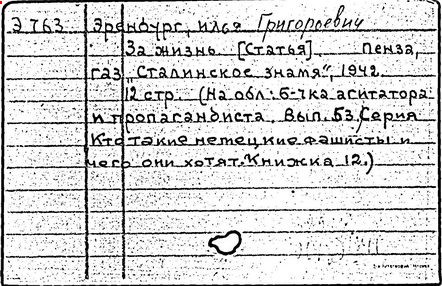 Э 763 Эренбург, илья Григорьевич
За жизнь [Статья]. Пенза,
газ. "Сталинское знамя", 1942.
12 стр. (На обл.: б-чка агитатора
и пропагандиста. Вып. 53. Серия
Кто такие немецкие фашисты и
чего они хотят. Книжка 12.)